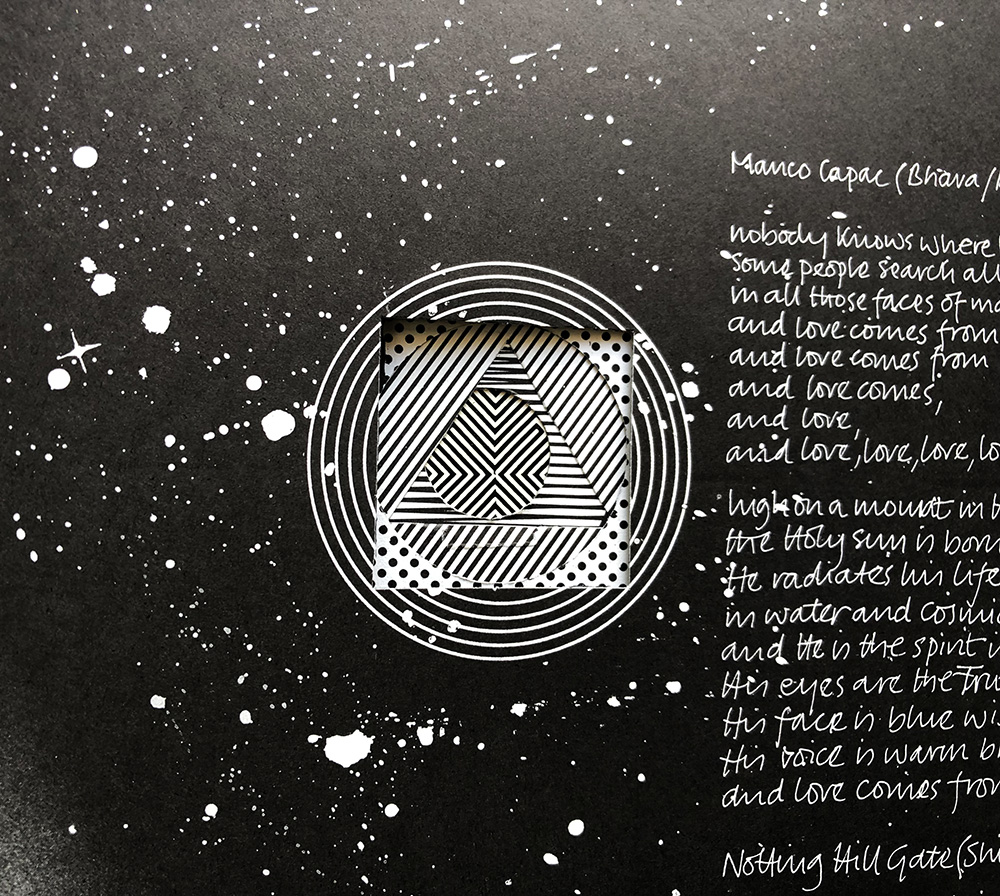 Manco Capac (Bhava/
nobody knows where
some people search all
in all those faces of
and love comes from
and love comes from
and love comes,
and love,
and love, love, love,
high on a mount in
the Holy sun is born
He radiates his life
in water and cosmic
and He is the spirit
His eyes are the
His face is blue
His voice is warm
and love comes from
Notting Hill Gate (